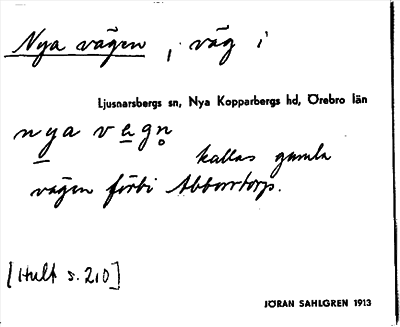 Nya vägen, väg i
Ljusnarsbergs sn, Nya Kopparbergs hd, Örebro län
nya vegn̥
kallas gamla
vägen förbi Abborrtorp.
[Hult s. 210]
JÖRAN SAHLGREN 1913